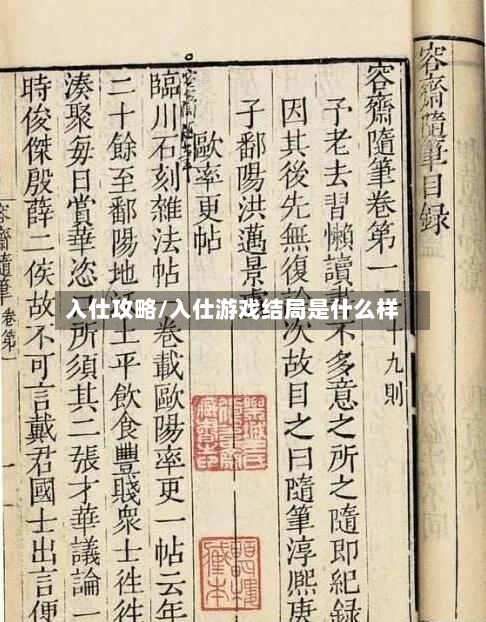 容齋隨筆目録
容齋隨筆卷第一 十九則
予老去習懶讀不多意之所之隨即紀録
因其後先無復次故目之曰隨筆淳熙庚
子鄱陽洪邁景
歐率更帖
臨川石刻雜法帖卷載歐陽率更一帖云年
二十餘至鄱陽地土平飲食豐賤衆士往往
湊聚每日賞華恣所須其二張才華議論一
時俊傑殷薛二侯故不可言戴君國士出言便
容齋隨筆 卷第
入仕攻略/入仕游戏结局是什么样